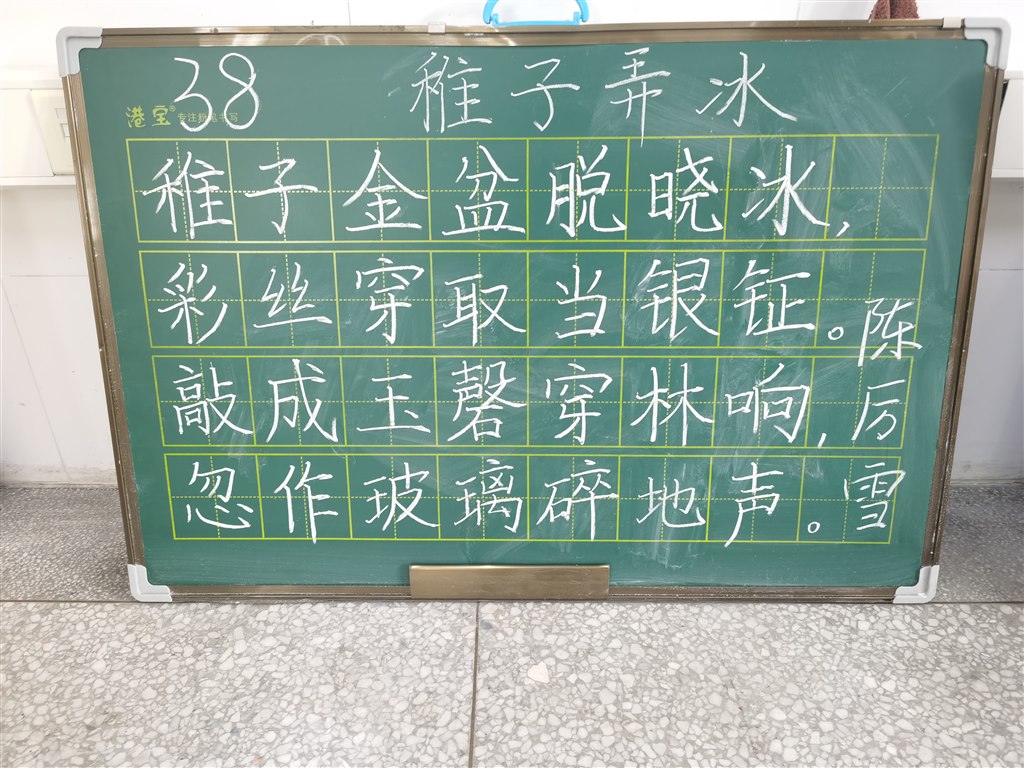 38 稚子弄冰
港宝® 专注粉笔书写
稚子金盆脱晓冰,
彩丝穿取当银钲。
敲成玉磬穿林响,
忽作玻璃碎地声。
陈厉雪